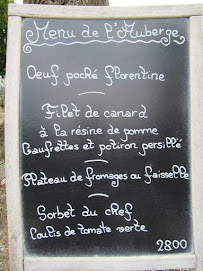 Menu de l'Auberge
Oeuf poché florentine
Filet de canard
à la résine de pomme
Gaufrettes et potiron persillé
Plateau de fromages ou faisselle
Sorbet du chef
Coulis de tomate verte
28.00